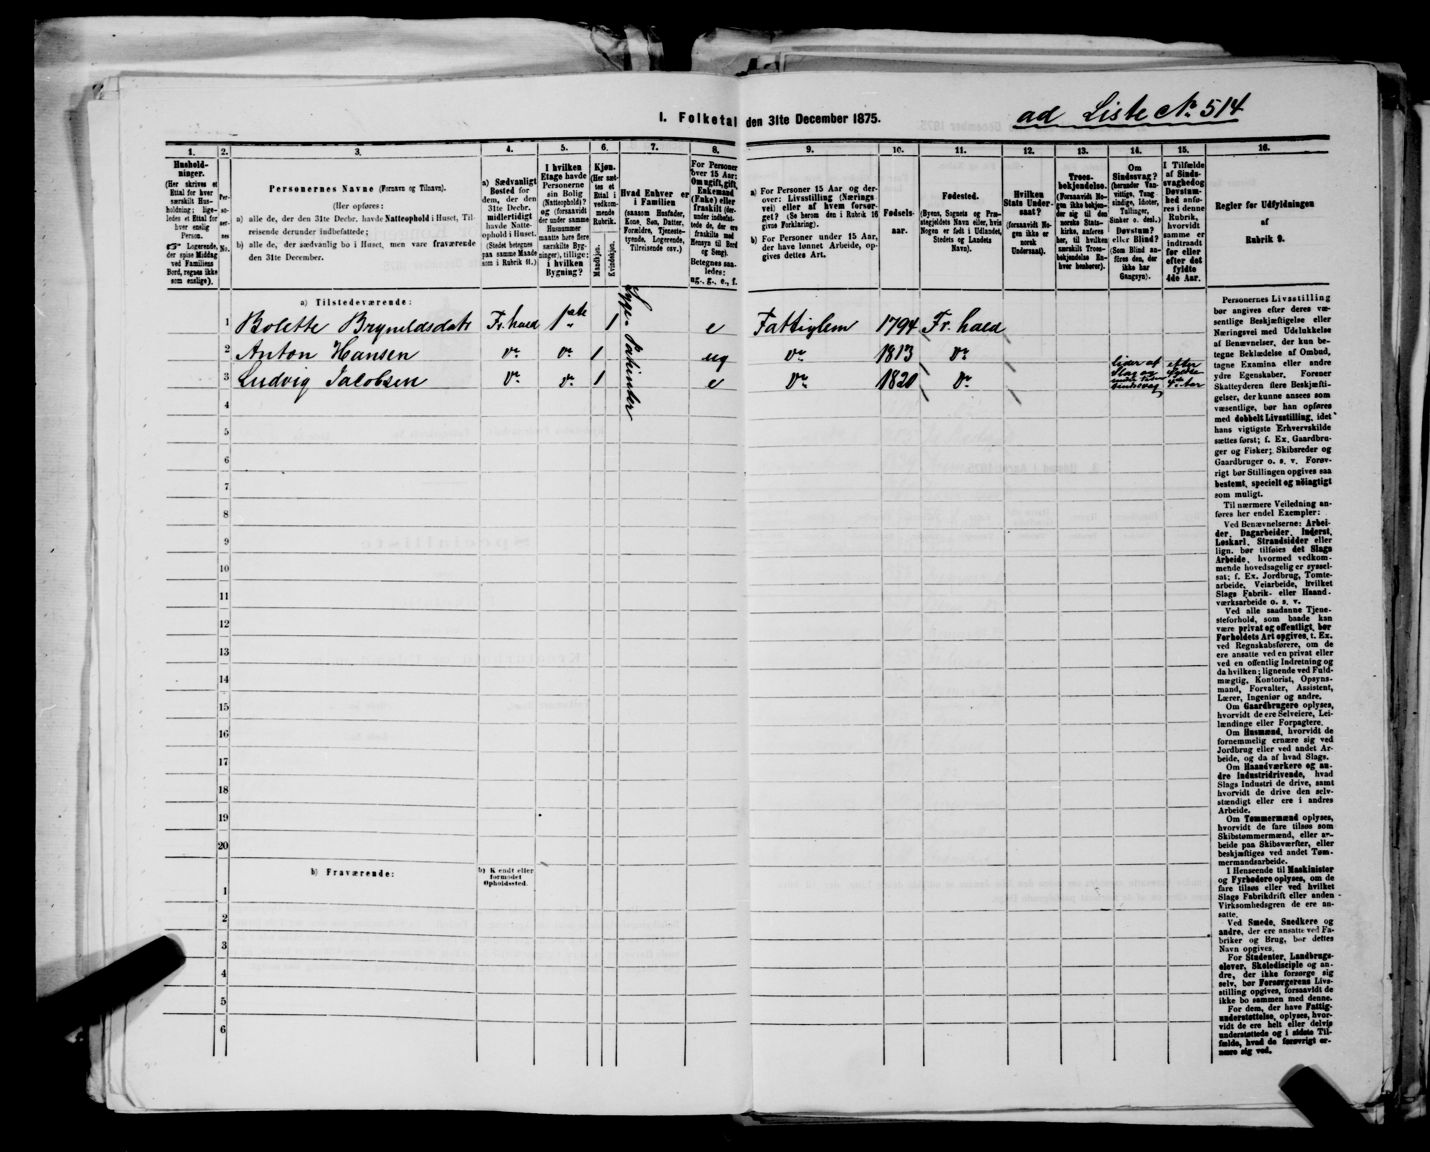 I. Folketal den 31te December 1875.
ad Liste No. 514
1.
Hushold-
ninger.
(Her skrives et
Ettal for hver
særskilt Hus-
holdning; lige-
ledes et Ettal for
hver enslig
Person.
☞ Logerende,
der spise Middag
ved Familiens
Bord, regnes ikke
som enslige).
2.
Per-
so-
ner-
nes
No.
3.
Personernes Navne (Fornavn og Tilnavn).
(Her opføres:
a) alle de, der den 31te Decbr. havde Natteophold i Huset, Til-
reisende derunder indbefattede;
b) alle de, der sædvanlig bo i Huset, men vare fraværende
den 31te December.
4.
a) Sædvanligt
Bosted for
dem, der den
31te Decbr.
midlertidigt
havde Natte-
ophold i Huset.
(Stedet betegnes
paa samme Maade
som i Rubrik 11.)
5.
I hvilken
Etage havde
Personerne
sin Bolig
(Natteophold)?
og (forsaavidt
der under samme
Husnummer
maatte høre flere
særskilte Byg-
ninger), tillige:
i hvilken
Bygning?
6.
Kjøn.
(Her sæt-
tes et
Ettal i
vedkom-
mende
Rubrik.
Mandkjøn.
Kvindekjøn.
7.
Hvad Enhver er
i Familien
(saasom Husfader,
Kone, Søn, Datter,
Forældre, Tjeneste-
tyende, Logerende,
Tilreisende osv.)
8.
For Personer
over 15 Aar:
Om ugift, gift,
Enkemand
(Enke) eller
fraskilt (der-
under indbefat-
tede de, der ere
fraskilte med
Hensyn til Bord
og Seng).
Betegnes saa-
ledes:
ug., g., e., f.
9.
a) For Personer 15 Aar og der-
over: Livsstilling (Nærings-
vei) eller af hvem forsør-
get? (Se herom den i Rubrik 16
givne Forklaring).
b) For Personer under 15 Aar,
der have lønnet Arbeide, op-
gives dettes Art.
10.
Fødsels-
aar.
11.
Fødested.
(Byens, Sognets og Præ-
stegjeldets Navn eller, hvis
Nogen er født i Udlandet,
Stedets og Landets
Navn).
12.
Hvilken
Stats Under-
saat?
(forsaavidt No-
gen ikke er
norsk
Undersaat).
13.
Troes-
bekjendelse.
(Forsaavidt No-
gen ikke bekjen-
der sig til den
norske Stats-
kirke, anføres
her, til hvilken
særskilt Troes-
bekjendelse En-
hver henhører).
14.
Om
Sindssvag?
(herunder Van-
vittige, Tung-
sindige, Idioter,
Tullinger,
Sinker o. desl.)
Døvstum?
eller Blind?
(Som Blind an-
føres den, der
ikke har
Gangsyn).
15.
I Tilfælde
af Sinds-
svaghed og
Døvstum-
hed anfø-
res i denne
Rubrik,
hvorvidt
samme er
indtraadt
før eller
efter det
fyldte
4de Aar.
16.
Regler for Udfyldningen
af
Rubrik 9.
a) Tilstedeværende:
1 Bolette Brynildsdatr Fr. hald 1ste 1 e Fattiglem 1794 Fr. hald
2 Anton Hansen Do Do 1 ug Do 1813 Do
3 Ludvig Jacobsen Do Do 1 e Do 1820 Do
Syge-Patienter
lider af
Slag og
sindssvag
efter
fyldte
4. Aar
4
5
6
7
8
9
10
11
12
13
14
15
16
17
18
19
20
b) Fraværende:
b) Kjendt eller
formodet
Opholdssted.
1
2
3
4
5
6
Personernes Livsstilling
bør angives efter deres væ-
sentlige Beskjæftigelse eller
Næringsvei med Udelukkelse
af Benævnelser, der kun be-
tegne Beklædelse af Ombud,
tagne Examina eller andre
ydre Egenskaber. Forener
Skatteyderen flere Beskjæfti-
gelser, der kunne ansees som
væsentlige, bør han opføres
med dobbelt Livsstilling, idet
hans vigtigste Erhvervskilde
sættes først; f. Ex. Gaardbru-
ger og Fisker; Skibsreder og
Gaardbruger o. s. v. Forøv-
rigt bør Stillingen opgives saa
bestemt, specielt og nøiagtigt
som muligt.
Til nærmere Veiledning an-
føres her endel Exempler:
Ved Benævnelserne: Arbei-
der, Dagarbeider, Inderst,
Løskarl, Strandsidder eller
lign. bør tilføies det Slags
Arbeide, hvormed vedkom-
mende hovedsagelig er syssel-
sat; f. Ex. Jordbrug, Tomte-
arbeide, Veiarbeide, hvilket
Slags Fabrik- eller Haand-
værksarbeide o. s. v.
Ved alle saadanne Tjene-
steforhold, som baade kan
være privat og offentligt, bør
Forholdets Art opgives, t. Ex.
ved Regnskabsførere, om de
ere ansatte ved en privat eller
ved en offentlig Indretning og
da hvilken; lignende ved Fuld-
mægtig, Kontorist, Opsyns-
mand, Forvalter, Assistent,
Lærer, Ingeniør og andre.
Om Gaardbrugere oplyses,
hvorvidt de ere Selveiere, Lei-
lændinge eller Forpagtere.
Om Husmænd, hvorvidt de
fornemmelig ernære sig ved
Jordbrug eller ved andet Ar-
beide, og da af hvad Slags.
Om Haandværkere og an-
dre Industridrivende, hvad
Slags Industri de drive, samt
hvorvidt de drive den selv-
stændigt eller ere i andres
Arbeide.
Om Tømmermænd oplyses,
hvorvidt de fare tilsøs som
Skibstømmermænd, eller ar-
beide paa Skibsværfter, eller
beskjæftiges ved andet Tøm-
mermandsarbeide.
I Henseende til Maskinister
og Fyrbødere oplyses, om de
fare tilsøs eller ved hvilket
Slags Fabrikdrift eller anden
Virksomhedsgren de ere an-
satte.
Ved Smede, Snedkere og
andre, der ere ansatte ved Fa-
briker og Brug, bør dettes
Navn opgives.
For Studenter, Landbrugs-
elever, Skoledisciple og an-
dre, der ikke forsørge sig
selv, bør Forsørgerens Livs-
stilling opgives, forsaavidt de
ikke bo sammen med denne.
For dem, der have Fattig-
understøttelse, oplyses, hvor-
vidt de ere helt eller delvis
understøttede og i sidste Til-
fælde, hvad de forøvrigt er-
nære sig ved.